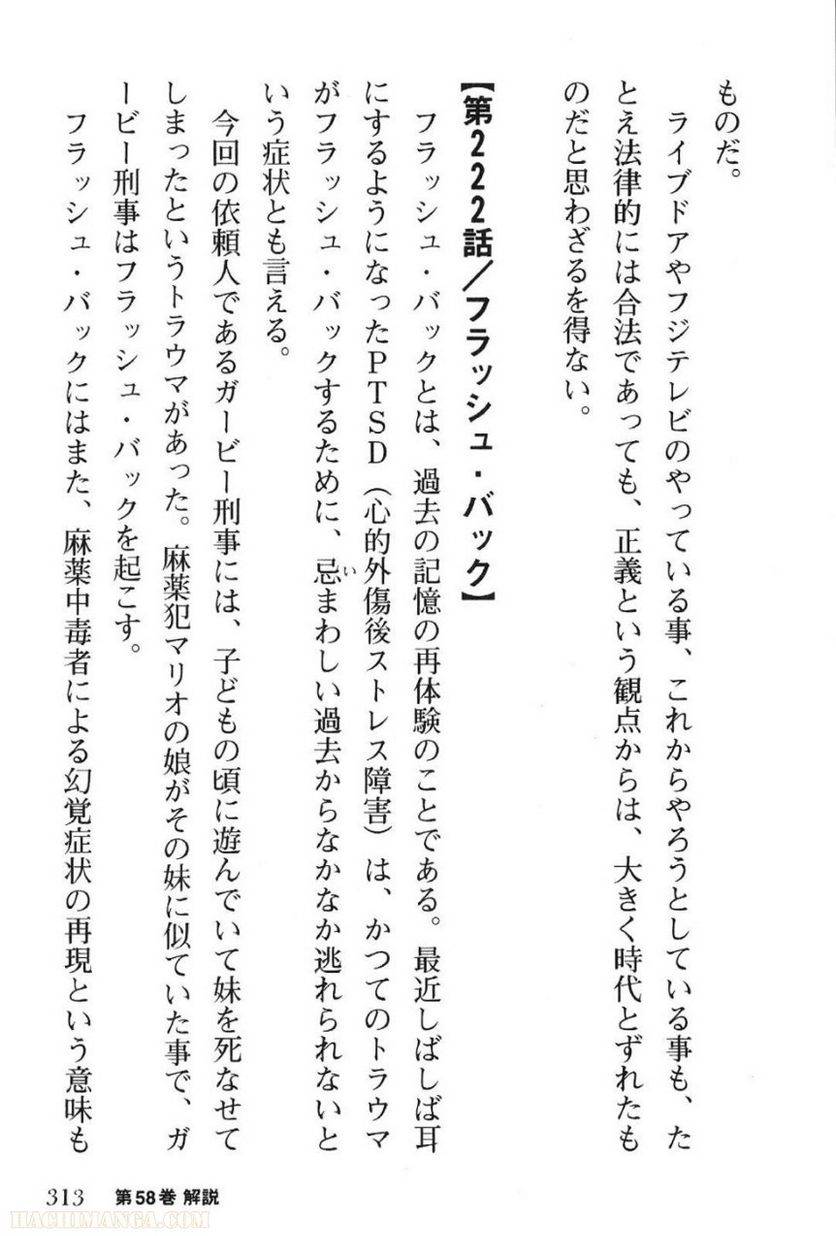 ものだ。
ライブドアやフジテレビのやっている事、これからやろうとしている事も、た
とえ法律的には合法であっても、正義という観点からは、大きく時代とずれたも
のだと思わざるを得ない。
【第222話/フラッシュ・バック】
フラッシュ・バックとは、過去の記憶の再体験のことである。最近しばしば耳
にするようになったPTSD（心的外傷後ストレス障害）は、かつてのトラウマ
がフラッシュ・バックするために、忌まわしい過去からなかなか逃れられないと
い
いう症状とも言える。
今回の依頼人であるガービー刑事には、子どもの頃に遊んでいて妹を死なせて
しまったというトラウマがあった。麻薬犯マリオの娘がその妹に似ていた事で、ガ
ービー刑事はフラッシュ・バックを起こす。
フラッシュ・バックにはまた、麻薬中毒者による幻覚症状の再現という意味も
313 第58巻 解説
HACHIMANGA.COM